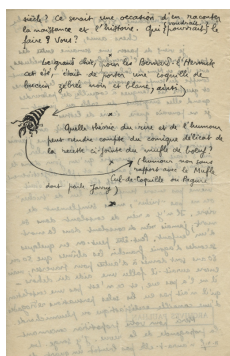 siècle ? Ce serait une occasion d'en raconter
la naissance et l'histoire. Qui pourrait le
voudrait
faire ? Vous ?
x
Le grand chic, pour les Bernard-l'Hermite
cet été, était de porter une coquille de
buccin zébrée noir et blanc, ainsi
x
Quelle théorie du rire et de l'humour
peut rendre compte du comique délicat de
la recette ci-jointe du mufle de bœuf ?
x
(humour non sans
rapport avec le Mufle
de Coquille ou Pagure
dont parle Jarry)
x